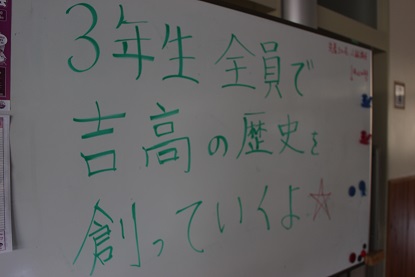 3年生 全員で
吉高の歴史を
創っていくよ☆